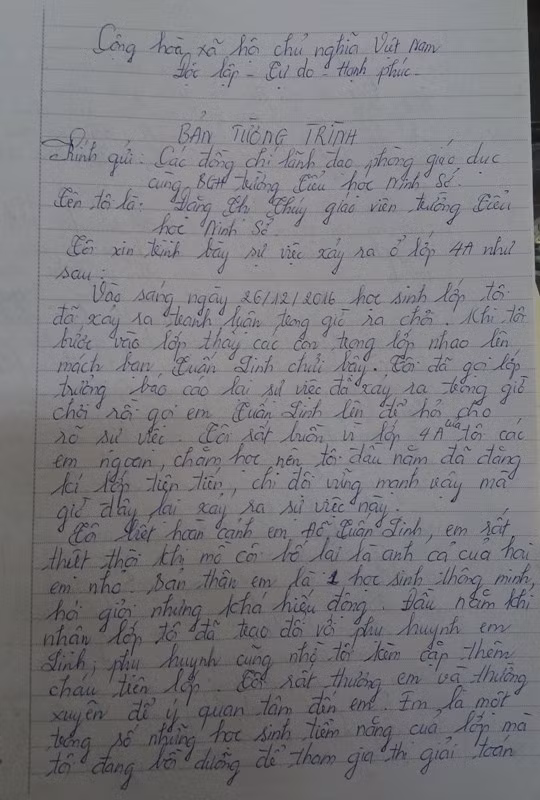 Cộng hoà xã hội chủ nghĩa Việt Nam
Độc lập - Tự do - Hạnh phúc.
BẢN TƯỜNG TRÌNH
Kính gửi: Các đồng chí lãnh đạo phòng giáo dục
cùng BGH trường Tiểu học Ninh Sở.
Tên tôi là: Đặng Thị Thủy giáo viên trường Tiểu
học Ninh Sở.
Tôi xin trình bày sự việc xảy ra ở lớp 4A như
sau:
Vào sáng ngày 26/12/2016 học sinh lớp tôi
đã xảy ra tranh luận trong giờ ra chơi. Khi tôi
bước vào lớp thấy các con trong lớp nhao lên
mách bạn Tuấn Linh chửi bậy. Tôi đã gọi lớp
trưởng báo cáo lại sự việc đã xảy ra trong giờ
chơi rồi gọi em Tuấn Linh lên để hỏi cho
rõ sự việc. Tôi rất buồn vì lớp 4A của tôi các
em ngoan, chăm học nên tôi đầu năm đã đăng
kí lớp tiên tiến, chi đội vững mạnh vậy mà
giờ đây lại xảy ra sự việc này.
Tôi biết hoàn cảnh em Đỗ Tuấn Linh, em rất
thiệt thòi khi mồ côi bố lại là anh cả của hai
em nhỏ. Bản thân em là 1 học sinh thông minh,
học giỏi nhưng khá hiếu động. Đầu năm khi
nhận lớp tôi đã trao đổi với phụ huynh em
Linh, phụ huynh cũng nhờ tôi kèm cặp thêm
cháu trên lớp. Tôi rất thương em và thường
xuyên để ý quan tâm đến em. Em là một
trong số những học sinh tiềm năng của lớp mà
tôi đang bồi dưỡng để tham gia thi giải toán